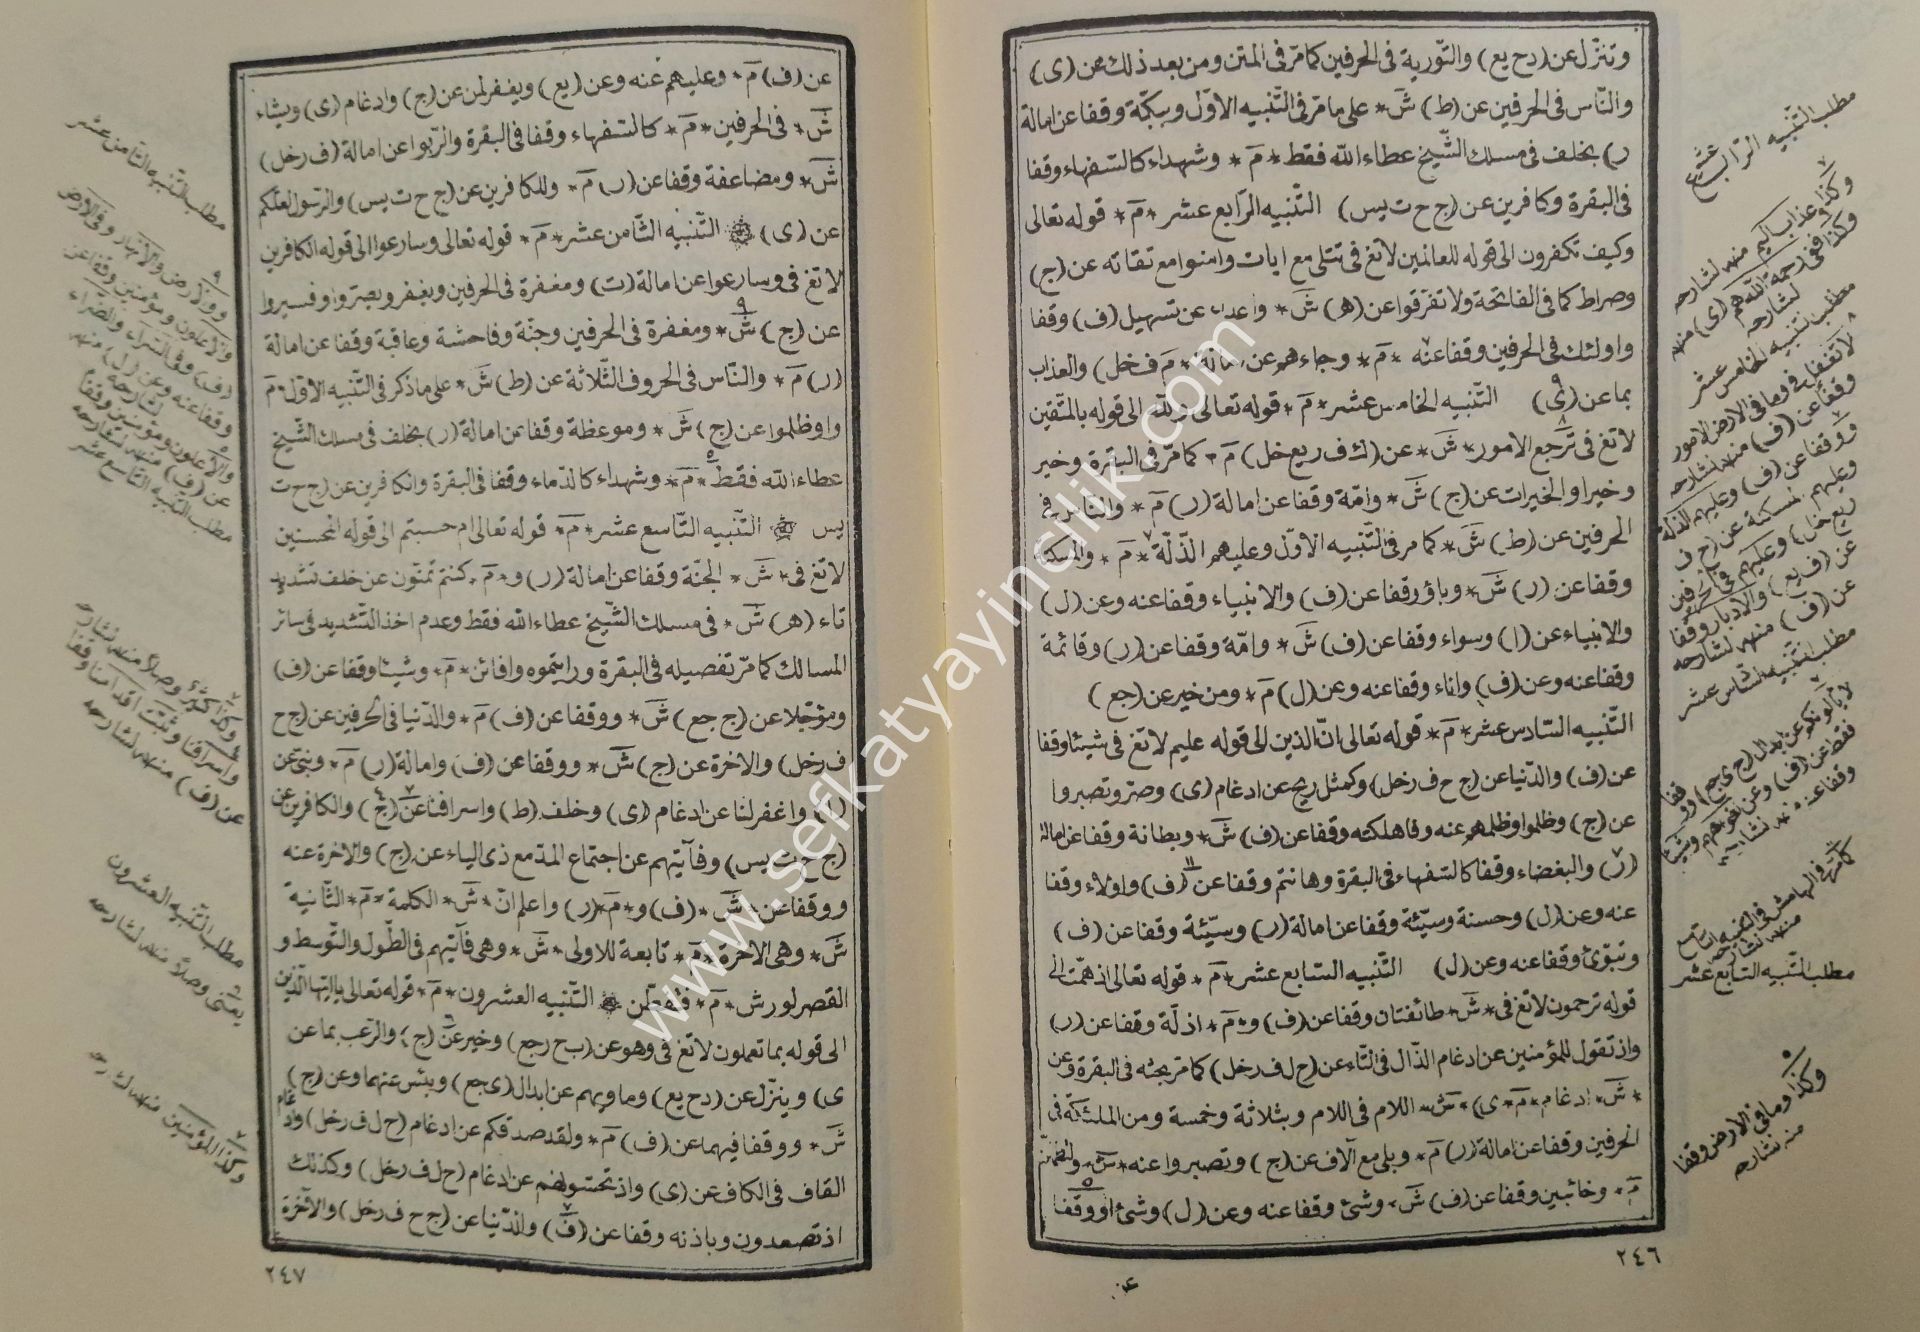 وتنزّل عن (دح يع) والتّورية فى الحرفين كما مرّ فى المتن ومن بعد ذلك عن (ى)
والنّاس فى الحرفين عن (ط) شَ * على ما مرّ فى التّنبيه الاوّل وببكّة وقفا عن امالة
ر) بخلف فى مسلك الشّيخ عطاء الله فقط * مَ * وشهداء كالسّفهاء وقفا
فى البقرة وكافرين عن (ج ح ت يس) التّنبيه الرّابع عشر * مَ * قوله تعالى
وكيف تكفرون الى قوله للعالمين لا تغ فى تتلى مع ايات وامنوا مع تقاته عن (ج)
وصراط كما فى الفاتحة ولا تفرّقوا عن (هـ) شَ * واعداء عن تسهيل (ف) وقفا
واولئك فى الحرفين وقفا عنه * مَ * وجاءهم عن امالة * مَ ف خل) والعذاب
بما عن (ى) التّنبيه الخامس عشر * مَ * قوله تعالى ولله الى قوله بالمتّقين
لا تغ فى ترجع الامور * شَ * عن (ك ف ريع خل) مَ * كما مرّ فى البقرة وخير
وخيرا والخيرات عن (ج) شَ * وامّة وقفا عن امالة (ر) مَ * والنّاس فى
الحرفين عن (ط) شَ * كما مر فى التّنبيه الاوّل وعليهم الذّلّة * مَ * والمسكنة
وقفا عن (ر) شَ * وباؤ وقفا عن (ف) والانبياء وقفا عنه وعن (ل)
والانبياء عن (ا) وسواء وقفا عن (ف) شَ * وامّة وقفا عن (ر) وقائمة
وقفا عنه وعن (ف) واناء وقفا عنه وعن (ل) مَ * ومن خير عن (جع)
التّنبيه السّادس عشر * مَ * قوله تعالى انّ الذين الى قوله عليم لا تغ فى شيئا وقفا
عن (ف) والدّنيا عن (ج ح ف رخل) وكمثل ريح عن ادغام (ى) وصرّ وتصبروا
عن (ج) وظلموا وظلمهم عنه وفاهلكته وقفا عن (ف) شَ * وبطانة وقفا عن امالة
(ر) والبغضاء وقفا كالسّفهاء فى البقرة وهانتم وقفا عن (ف) واولاء وقفا
عنه وعن (ل) وحسنة وسيّئة وقفا عن امالة (ر) وسيّئة وقفا عن (ف)
وتبوّئ وقفا عنه وعن (ل) التّنبيه السّابع عشر * مَ * قوله تعالى اذ همّت الى
قوله ترحمون لا تغ فى * شَ * طائفتان وقفا عن (ف) و * مَ * اذلّة وقفا عن (ر)
واذ تقول للمؤمنين عن ادغام الذّال فى التّاء عن (ح ل ف رخل) كما مرّ بحثه فى البقرة وعن
* شَ * ادغام * مَ * ى) * شَ * اللام فى اللام وبثلاثة وخمسة ومن الملئكة فى
الحرفين وقفا عن امالة (ر) مَ * وبلى مع الآف عن (ج) وتصبروا عنه * شَ *
مَ * وخائبين وقفا عن (ف) شَ * وشئ وقفا عنه وعن (ل) وشئ او وقفا
٢٤٦
مطلب التّنبيه الرّابع عشر
وكذا عذاب اليم منهـ لشارحه
وكذا ففى رحمة الله هم (ى) منهـ لشارحه
مطلب التّنبيه الخامس عشر
وقفا عن (ف) منهـ لشارحه
مطلب التّنبيه السّادس عشر
مطلب التّنبيه السّابع عشر
وكذا وما فى الارض وقفا
منه لشارحه
عن (ف) مَ * وعليهم عنه وعن (يع) ويغفر لمن عن (ج) وادغام (ى) ويشاء
شَ * فى الحرفين * مَ * كالسّفهاء وقفا فى البقرة والرّبوا عن امالة (ف رخل)
شَ * ومضاعفة وقفا عن (ر) مَ * وللكافرين عن (ج ح ت يس) والرّسول لعلّكم
عن (ى) التّنبيه الثّامن عشر * مَ * قوله تعالى وسارعوا الى قوله الكافرين
لا تغ فى وسارعوا عن امالة (ت) ومغفرة فى الحرفين ويغفر ويصرّوا وفسيروا
عن (ج) شَ * ومغفرة فى الحرفين وجنّة وفاحشة وعاقبة وقفا عن امالة
(ر) مَ * والنّاس فى الحروف الثّلاثة عن (ط) شَ * على ما ذكر فى التّنبيه الاوّل * مَ
واو ظلموا عن (ج) شَ * وموعظة وقفا عن امالة (ر) بخلف فى مسلك الشّيخ
عطاء الله فقط * مَ * وشهداء كالدّماء وقفا فى البقرة والكافرين عن (ج ح ت
يس التّنبيه التّاسع عشر * مَ * قوله تعالى ام حسبتم الى قوله المحسنين
لا تغ فى * شَ * الجنّة وقفا عن امالة (ر) و * مَ * كنتم تمنّون عن خلف تشديد
تاء (هـ) شَ * فى مسلك الشّيخ عطاء الله فقط وعدم اخذ التّشديد فى سائر
المسالك كما مرّ تفصيله فى البقرة ورايتموه وافائن * مَ * وشيئا وقفا عن (ف)
ومؤجّلا عن (ج جع) شَ * ووقفا عن (ف) مَ * والدّنيا فى الحرفين عن (ج ح
ف رخل) والاخرة عن (ج) شَ * ووقفا عن (ف) وامالة (ر) مَ * ونبى عن
(ا) واغفر لنا عن ادغام (ى) وخلف (ط) واسرافنا عن (ج) والكافرين عن
(ج ح ت يس) وفآيتهم عن اجتماع المدّ مع ذى الياء عن (ج) والاخرة عنه
ووقفا عن * شَ * (ف) و * مَ * (ر) واعلم انّ * شَ * الكلمة * مَ * الثّانية
شَ * وهى الاخرة * مَ * تابعة للاولى * شَ * وهى فآتيهم فى الطّول والتّوسط و
القصر لورش * مَ * فتفطّن التّنبيه العشرون * مَ * قوله تعالى ياايّها الّذين
الى قوله بما تعملون لا تغ فى وهو عن (ب ح رجع) وخير عن (ج) والرّعب بما عن
ى) وينزّل عن (دح يع) وماويهم عن ابدال (ى جع) وبئس عنهما وعن (ج)
شَ * ووقفا فيهما عن (ف) مَ * ولقد صدقكم عن ادغام (ح ل ف رخل) وادغام
القاف فى الكاف عن (ى) واذ تحسّونهم عن ادغام (ح ل ف رخل) وكذلك
اذ تصعدون وباذنه وقفا عن (ف) والدّنيا عن (ج ح ف رخل) والآخرة
٢٤٧
مطلب التّنبيه الثّامن عشر
مطلب التّنبيه التّاسع عشر
عن (ف) منهـ لشارحه
مطلب التّنبيه العشرون
يعنى وصلا منهـ لشارحه
وكذا المؤمنين
www.sefkatyayincilik.com